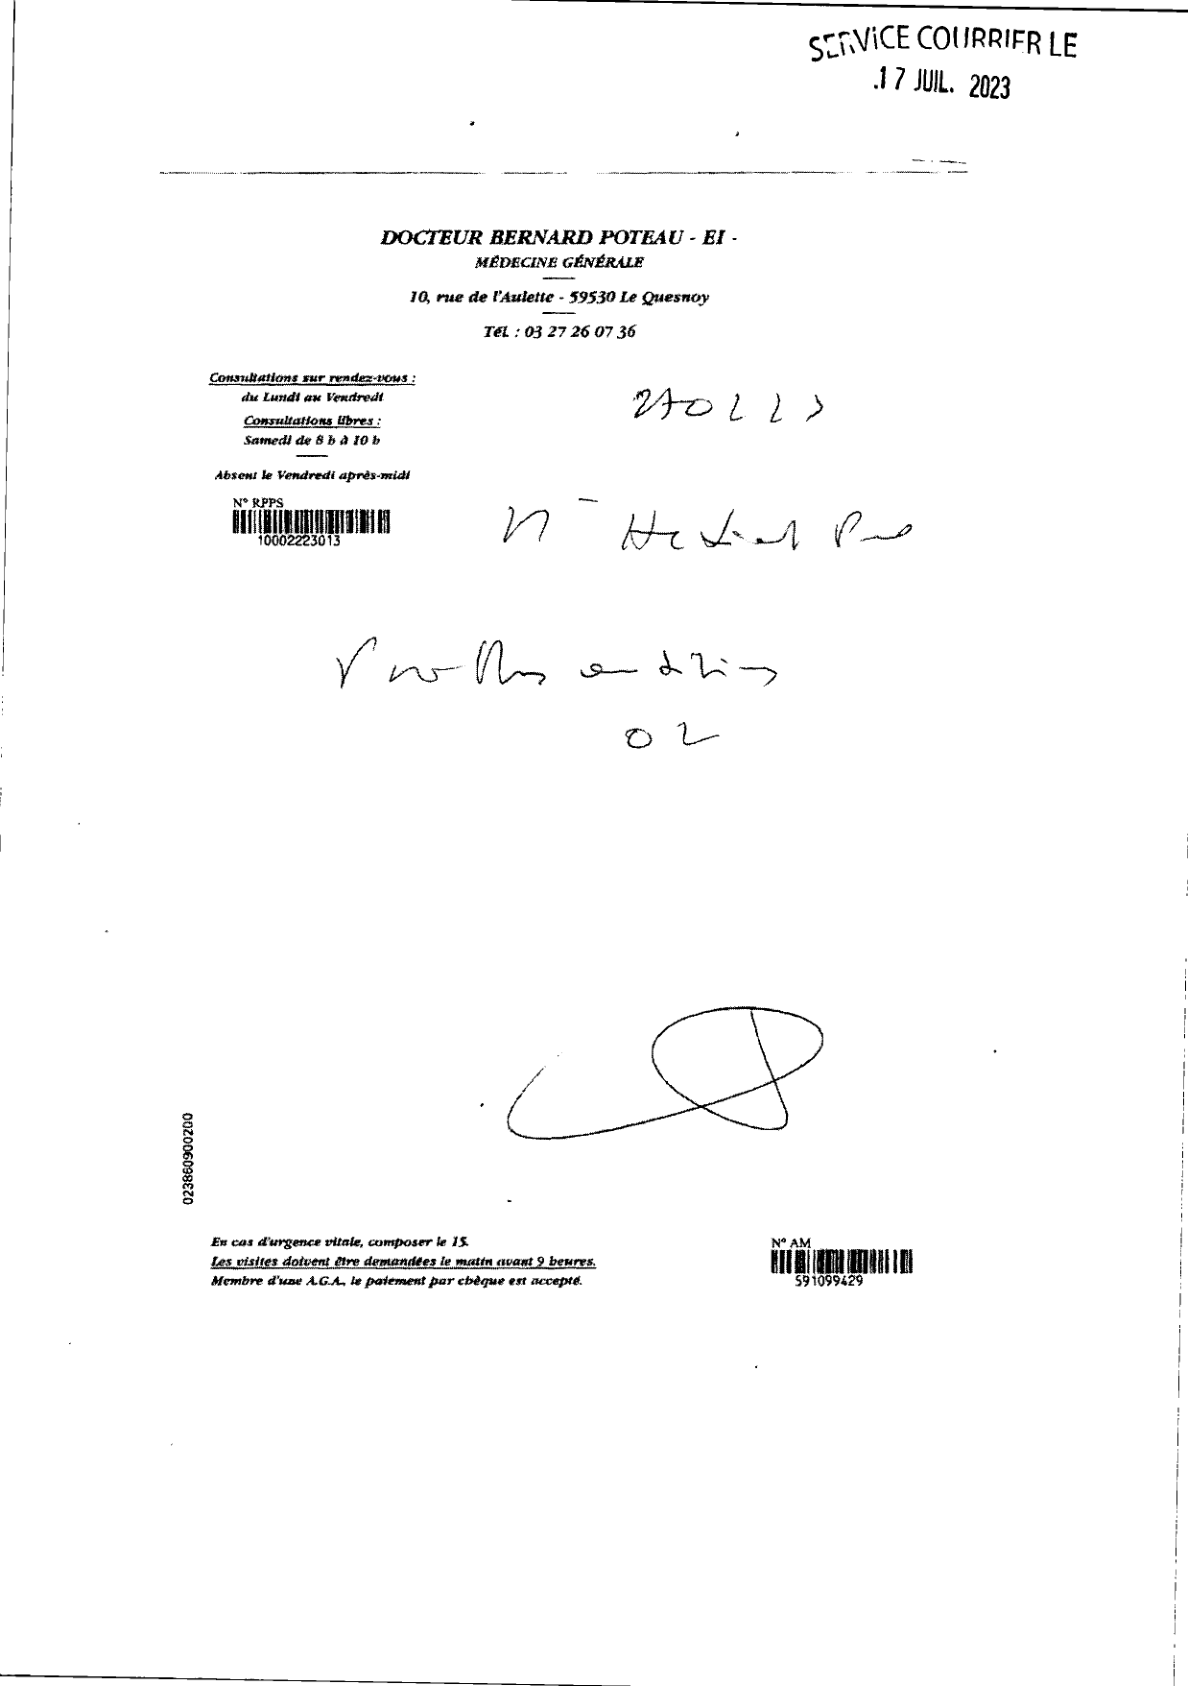 SERVICE COURRIER LE
17 JUIL. 2023
DOCTEUR BERNARD POTEAU - EI -
MÉDECINE GÉNÉRALE
10, rue de l'Aulette - 59530 Le Quesnoy
Tél. : 03 27 26 07 36
Consultations sur rendez-vous :
du Lundi au Vendredi
Consultations libres :
Samedi de 8 h à 10 h
Absent le Vendredi après-midi
N° RPPS
10002223013
02
023860900200
En cas d'urgence vitale, composer le 15.
Les visites doivent être demandées le matin avant 9 heures.
Membre d'une A.G.A., le paiement par chèque est accepté.
N° AM
591099429